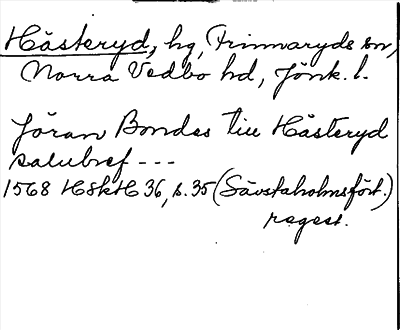 Hästeryd, hg, Frinnaryds sn,
Norra Vedbo hd, Jönk. l.
Jöran Bondes till Hästeryd
salubref ---
1568 HSkH 36, s. 35 (Sävstaholmsfört.)
regest.